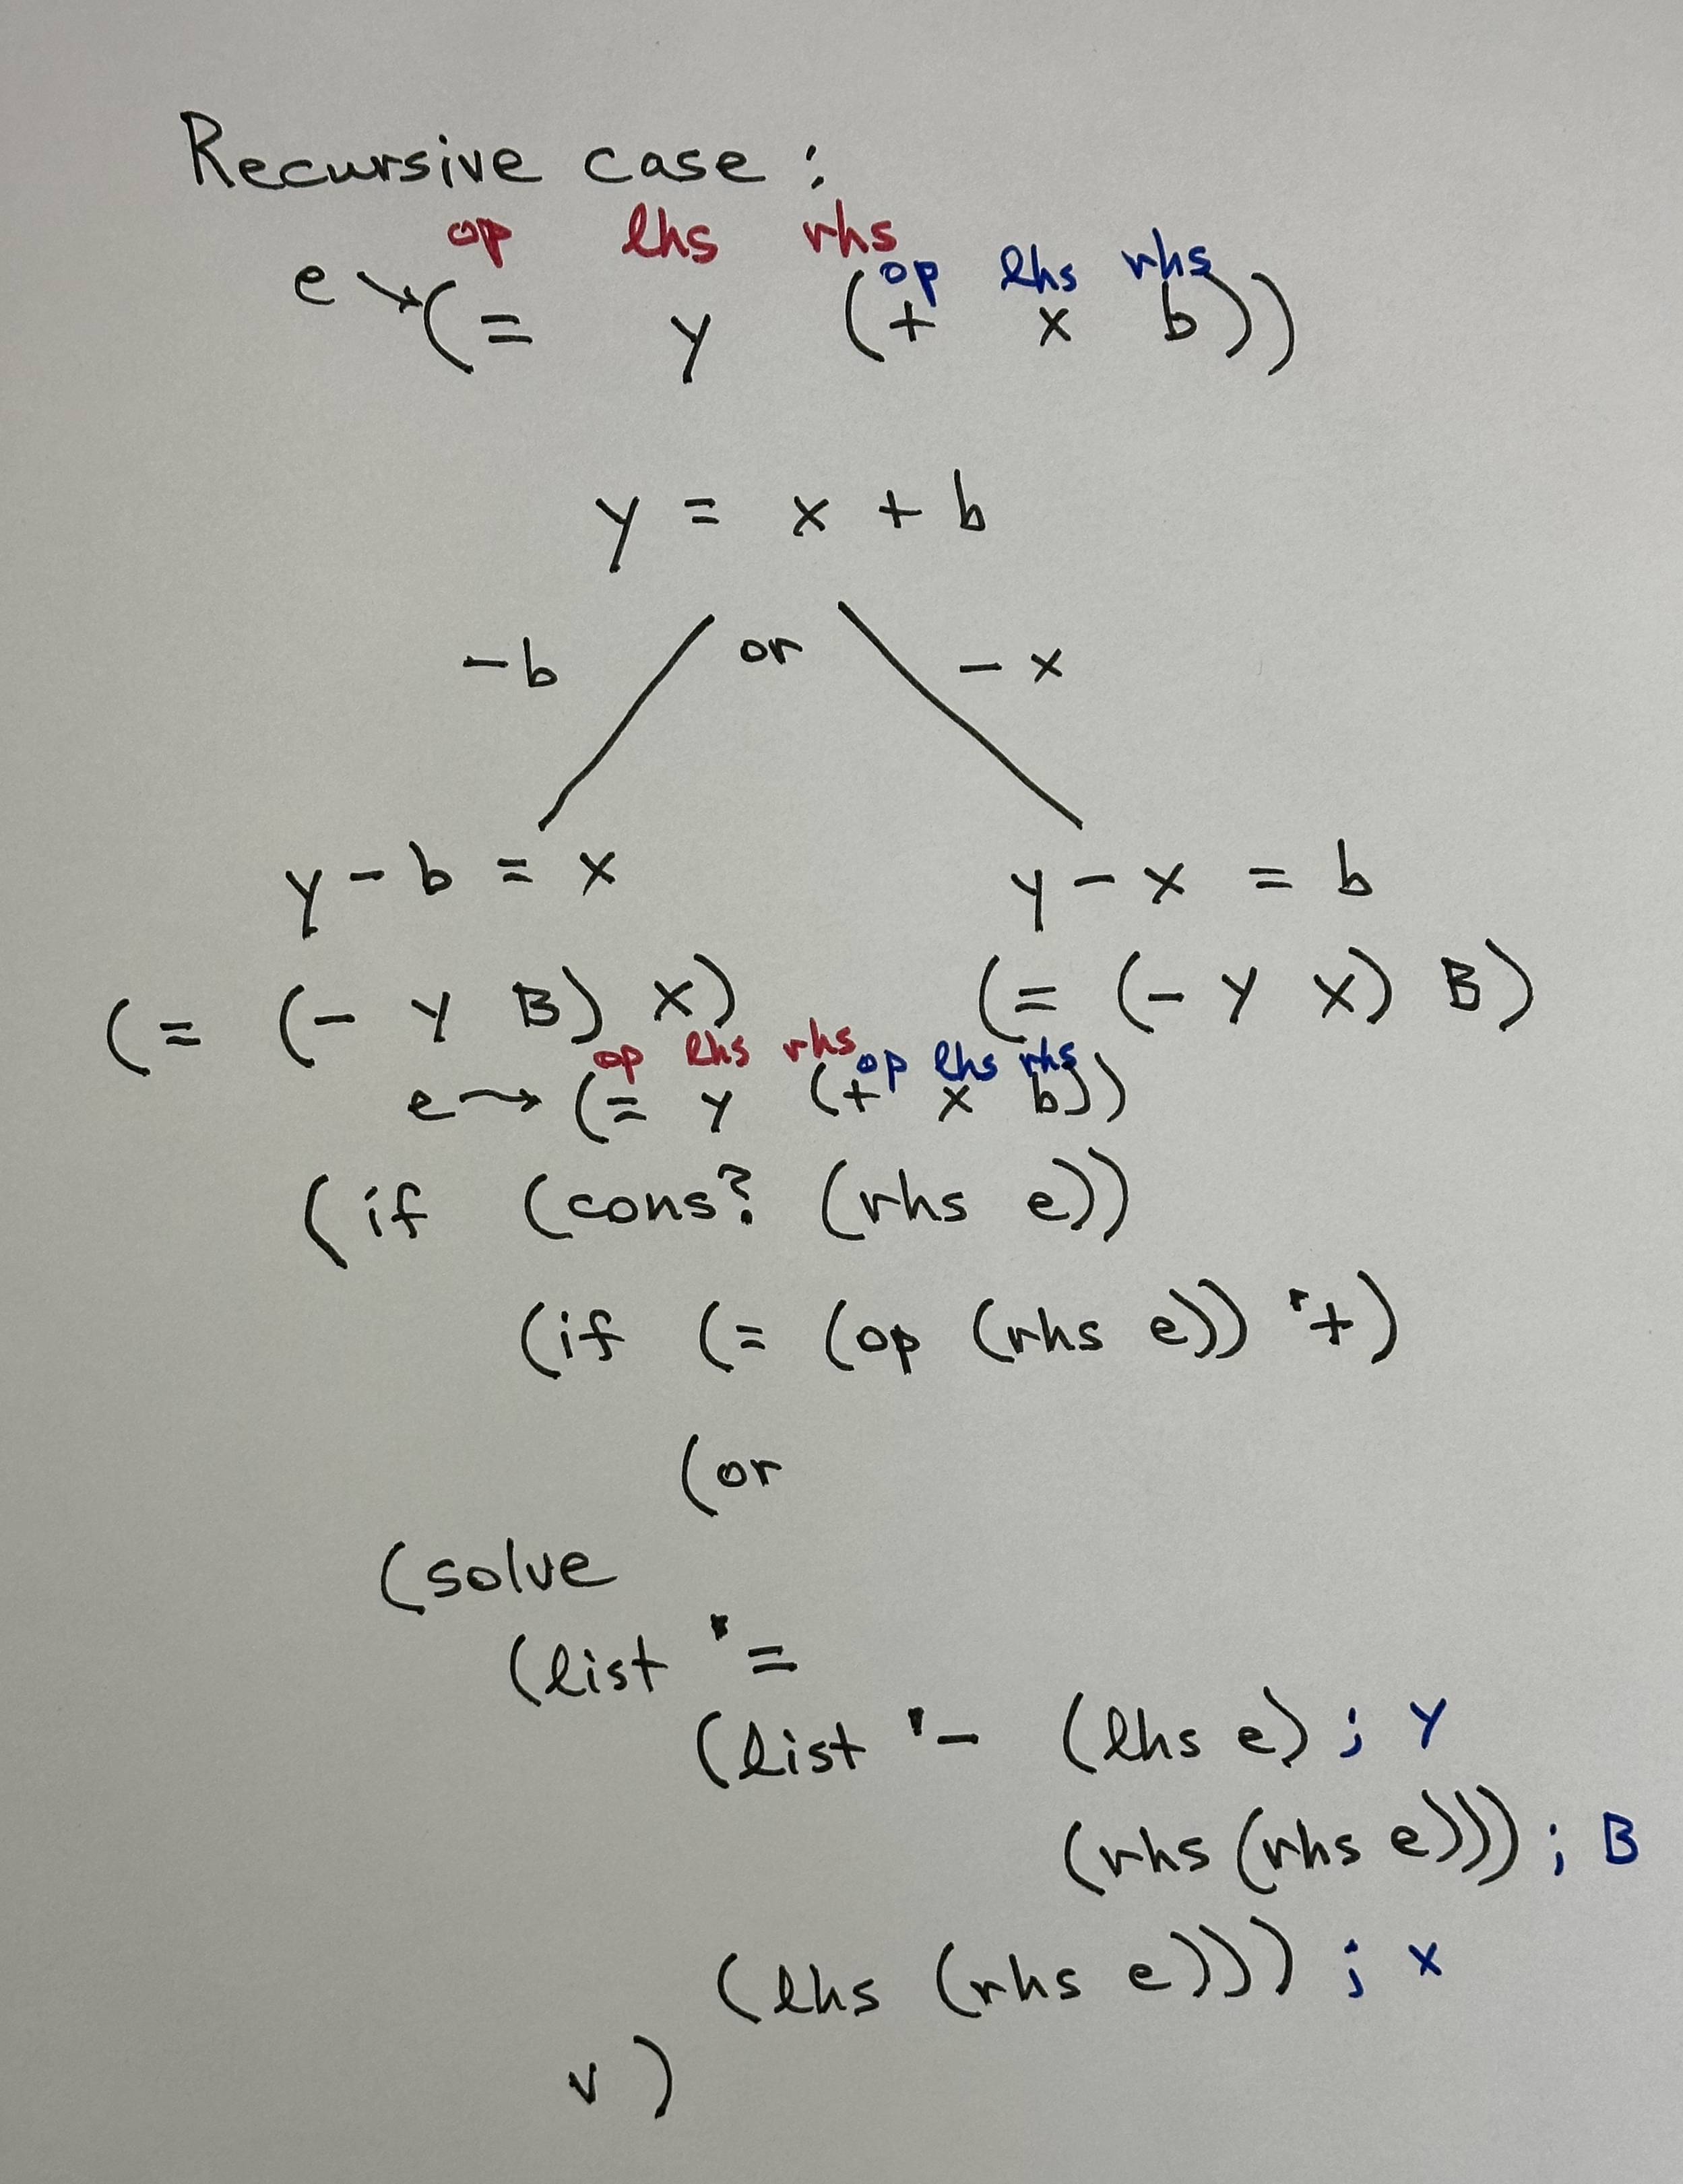 Recursive case :
op lhs rhs
op lhs rhs
e → (= y (+ x b))
y = x + b
- b or - x
y - b = x y - x = b
(= (- Y B) X) (= (- Y X) B)
op lhs rhs op lhs rhs
e → (= y (+ x b))
(if (cons? (rhs e))
(if (= (op (rhs e)) '+)
(or
(solve
(list '=
(list '- (lhs e) ; Y
(rhs (rhs e))) ; B
(lhs (rhs e))) ; X
v )